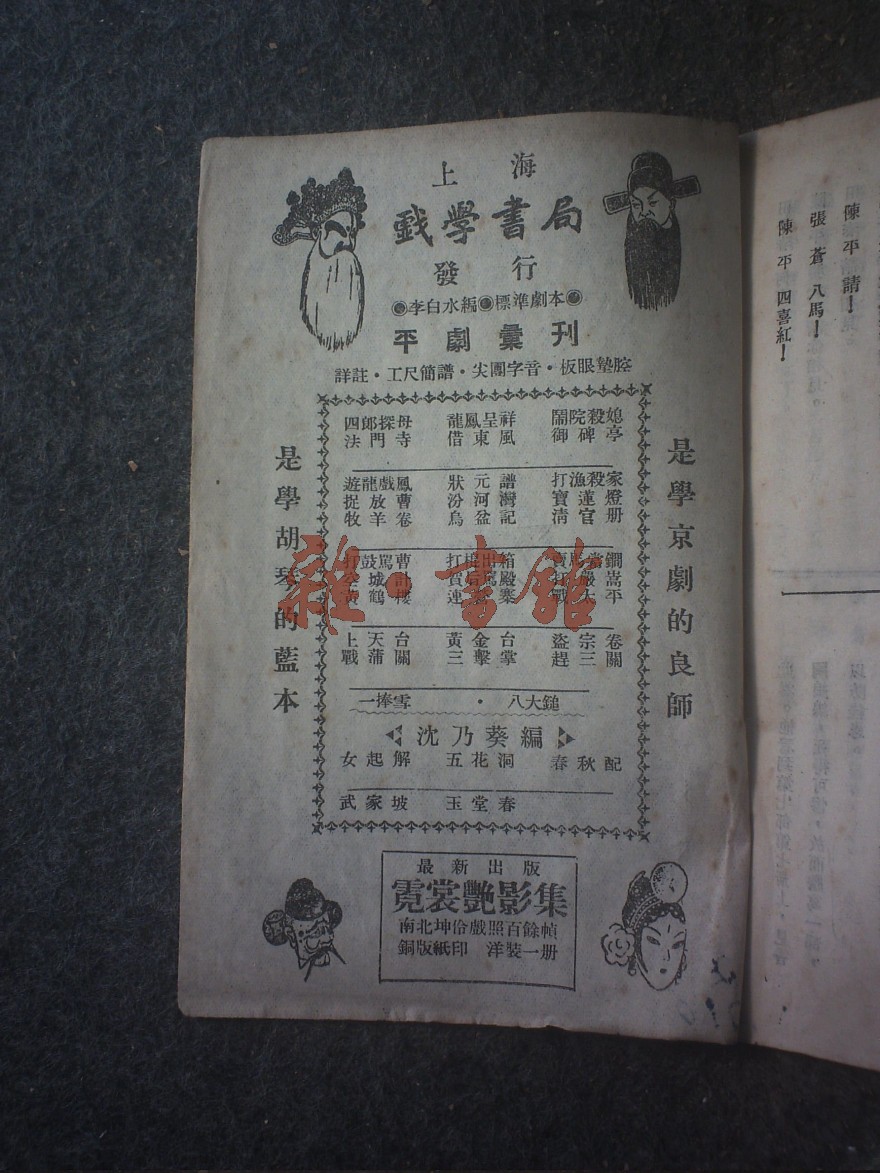 上海
戲學書局
發行
◉李白水編◉標準劇本◉
平劇彙刊
詳註・工尺簡譜・尖團字音・板眼墊腔
是學胡琴的藍本
是學京劇的良師
四郎探母 龍鳳呈祥 鬧院殺媳
法門寺 借東風 御碑亭
遊龍戲鳳 狀元譜 打漁殺家
捉放曹 汾河灣 寶蓮燈
牧羊卷 烏盆記 清官册
打鼓罵曹 打棍出箱
上天台 黃金台 盜宗卷
戰蒲關 三擊掌 趕三關
一捧雪・八大鎚
沈乃葵編
女起解 五花洞 春秋配
武家坡 玉堂春
最新出版
霓裳艷影集
南北坤伶戲照百餘幀
銅版紙印 洋裝一册
雜・書館
陳平請！
張蒼八馬！
陳平四喜紅！